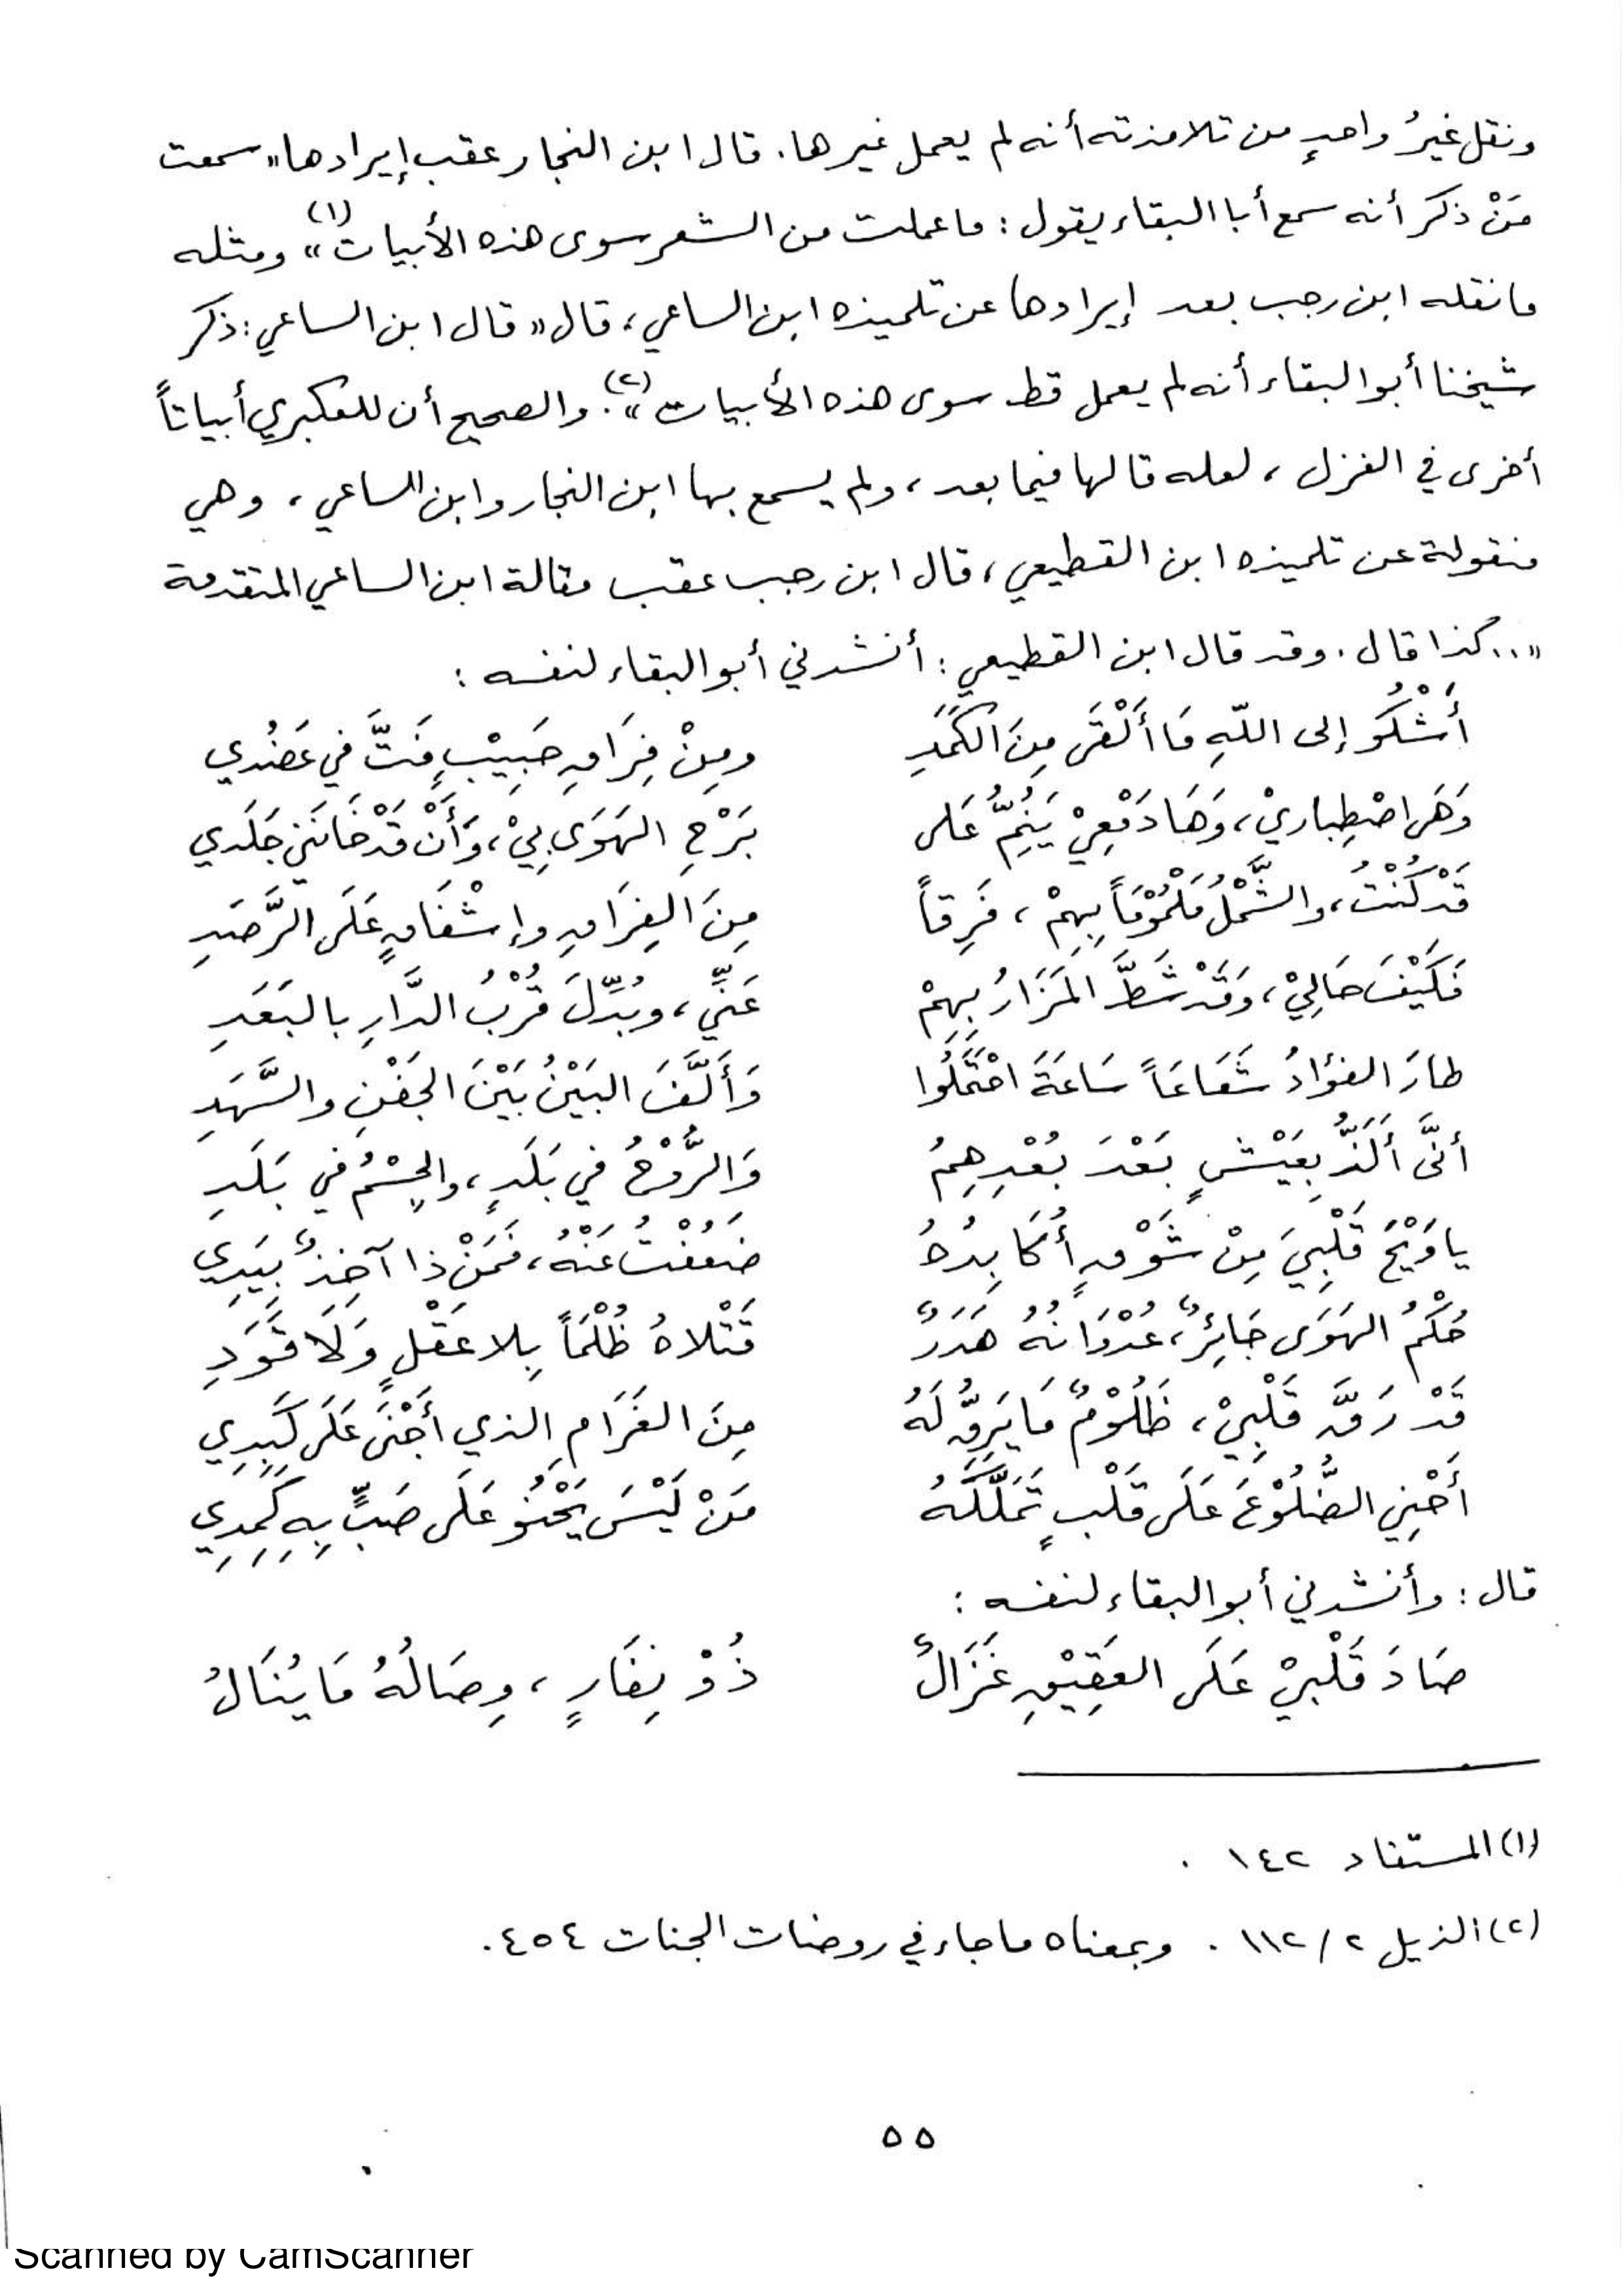 ونقل غيرُ واحدٍ من تلامذته أنه لم يعمل غيرها. قال ابن النجار عقب إيرادها «سمعت
مَنْ ذكر أنه سمع أبا البقاء يقول: ما عملت من الشعر سوى هذه الأبيات»(١) ومثله
ما نقله ابن رجب بعد إيرادها عن تلميذه ابن الساعي، قال «قال ابن الساعي: ذكر
شيخنا أبو البقاء أنه لم يعمل قط سوى هذه الأبيات»(٢). والصحيح أن للعكبري أبياتاً
أخرى في الغزل، لعله قالها فيما بعد، ولم يسمع بها ابن النجار وابن الساعي، وهي
منقولة عن تلميذه ابن القطيعي، قال ابن رجب عقب مقالة ابن الساعي المتقدمة
«..كذا قال. وقد قال ابن القطيعي: أنشدني أبو البقاء لنفسه:
أَشْكُو إلى اللّهِ مَا أَلْقَى مِنَ الكَمَدِ ومِنْ فِرَاقِ حَبِيْبٍ فَتَّ في عَضُدي
وَهَى اصْطِباريْ، وَهَا دَمْعِيْ يَنُمُّ عَلى بَرْحِ الهَوَى بِيْ، وَأَنْ قَدْ خَانَني جَلَدي
قَدْ كُنْتُ، والشَّمْلُ مَلْمُوْمَاً بِهِمْ، فَرِقاً مِنَ الفِرَاقِ وإشْفَاقٍ عَلَى الرَّصَدِ
فَكَيْفَ حَالِيْ، وَقَدْ شَطَّ المَزَارُ بِهِمْ عَنِّي، وبُدِّلَ قُرْبُ الدَّارِ بالبَعَدِ
طارَ الفؤادُ شَعَاعَاً سَاعَةَ احْتَمَلُوا وَأَلَّفَ البَيْنُ بَيْنَ الجَفْنِ والسَّهَدِ
أنَّى أَلَذُّ بِعَيْشٍ بَعْدَ بُعْدِهِمُ وَالرُّوْحُ في بَلَدٍ، والجِسْمُ في بَلَدِ
يا وَيْحَ قَلْبِيَ مِنْ شَوْقٍ أُكَابِدُهُ ضَعُفْتُ عَنْهُ، فَمَنْ ذا آخِذٌ بِيَدِي
حُكْمُ الهَوَى جَائِرٌ، عُدْوَانُهُ هَدَرٌ قَتْلاهُ ظُلْمَاً بِلا عَقْلٍ وَلَا قَوَدِ
قَدْ رَقَّ قَلْبِيْ، ظَلُوْمٌ مَا يَرِقُّ لَهُ مِنَ الغَرَامِ الذي أَجْنَى عَلَى كَبِدِي
أَحْنِي الضُّلُوْعَ عَلَى قَلْبٍ تَمَلَّكَهُ مَنْ لَيْسَ يَحْنُو عَلَى صَبٍّ بِهِ كَمِدِي
قال: وأنشدني أبو البقاء لنفسه:
صَادَ قَلْبيْ عَلَى العَقِيْقِ غَزَالٌ ذُوْ نِفَارٍ، وِصَالُهُ مَا يُنَالُ
(١) المستفاد ١٤٢ .
(٢) الذيل ٢/١١٢ . وبمعناه ما جاء في روضات الجنات ٤٥٤.
٥٥
Scanned by CamScanner